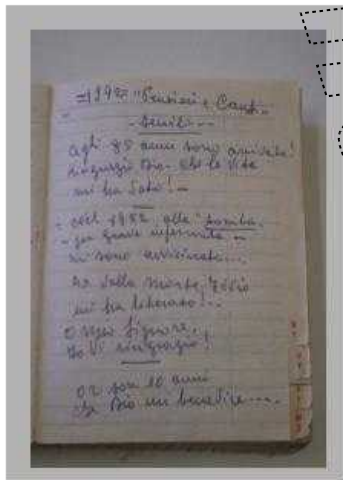 =1992= "Pensieri e Canti..
- Senili...
Agli 85 anni sono arrivata!
ringrazio Dio - che la vita
mi ha dato! -
= coll 1952 alla "tomba.
- per grave infermità -
mi sono avvicinata...
ma dalla morte, Iddio
mi ha liberato!..
O mio Signore,
Io Vi ringrazio!
or son 10 anni
che Dio mi benedice....